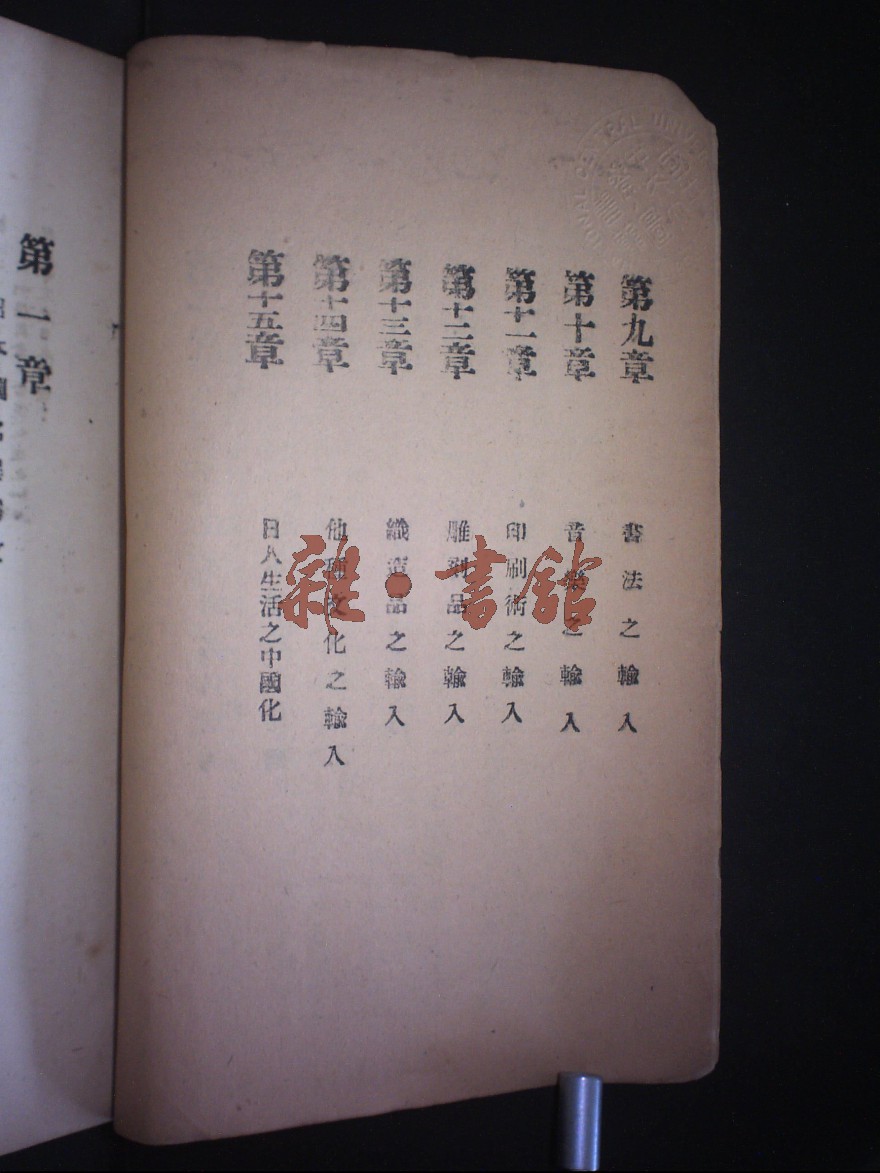 第九章 書法之輸入
第十章 音樂之輸入
第十一章 印刷術之輸入
第十二章 雕刻品之輸入
第十三章 織造品之輸入
第十四章 他種文化之輸入
第十五章 日人生活之中國化
第一章
雜·書館